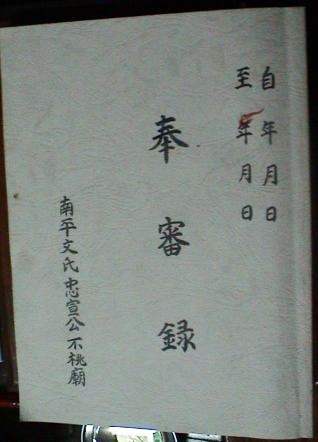 自 年 月 日
至 年 月 日
奉審録
南平文氏 忠宣公 不祧廟